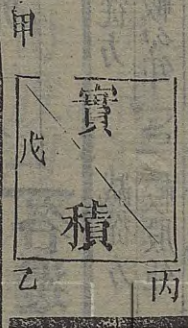 甲
實
戊
積
乙
丙